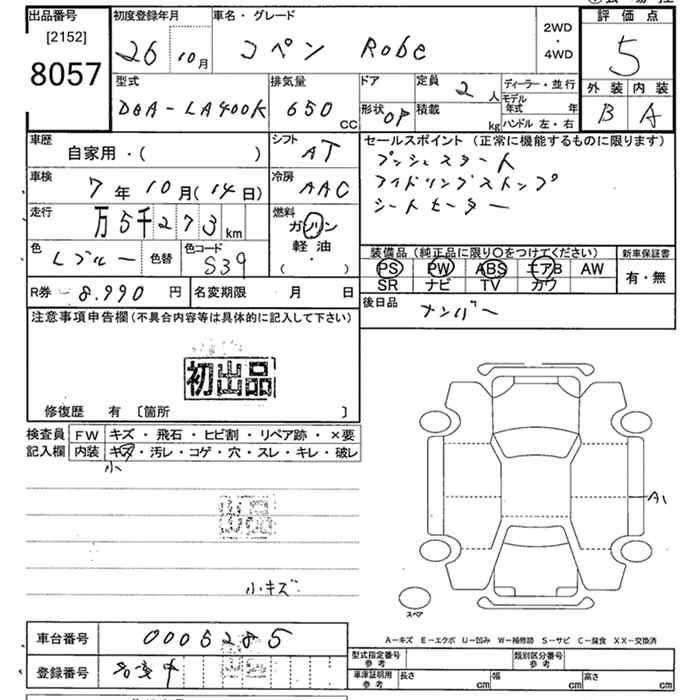 出品番号 初度登録年月 車名・グレード 評価点
[2152]
8057
26 10月 コペン Robe 2WD・4WD 5
型式 排気量 ドア 定員 2人 ディーラー・並行 外装 内装
DBA-LA400K 650CC 形状 OP 積載 kg モデル年式 年 ハンドル 左・右 B A
車歴 自家用・( ) シフト AT セールスポイント(正常に機能するものに限ります)
プッシュスタート
アイドリングストップ
シートヒーター
車検 7年10月(14日) 冷房 AAC
走行 万5千273km 燃料 ガソリン 軽油 ( ・ )
色 Lブルー 色替 色コード S39
装備品(純正品に限り〇をつけてください) 新車保証書
PS PW ABS エアB AW 有・無
SR ナビ TV カワ
R券 8.990円 名変期限 月 日 後日品 ナンバー
注意事項申告欄(不具合内容等は具体的に記入して下さい)
初出品
修復歴 有 〔箇所 〕
検査員 FW キズ・飛石・ヒビ割・リペア跡・×要
記入欄 内装 キズ・汚レ・コゲ・穴・スレ・キレ・破レ
小
A1
小キズ
スペア
車台番号 0005285
A-キズ E-エクボ U-凹み W-補修跡 S-サビ C-腐食 XX-交換済
型式指定番号 参考 類別区分番号 参考
登録番号
車庫証明用 参考 長さ cm 幅 cm 高さ cm